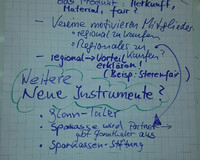 das Produkt: Herkunft,
Material, fair?
- Vereine motivieren Mitglieder
• regional zu kaufen
• Regionales zu kaufen
- regional → Vorteil erklären!
(Beispiel: Sterenfair)
Weitere
Neue Instrumente?
• Glonn-Taler
• Sparkasse wird Partner
gibt Glonntaler aus
• Sparkassen-Stiftung